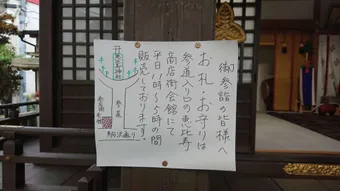 御参詣の皆様へ
お札・お守りは
参道入り口の恵比寿
商店街会館にて
平日11時~5時の間
販売しております。
参道
駒沢通り